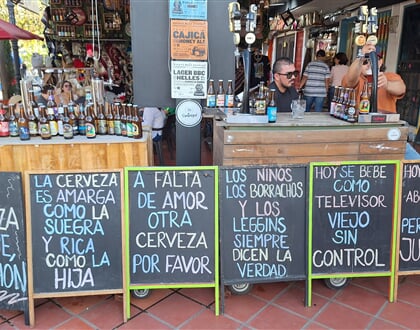 CAJICÁ
HONEY ALE
LAGER BBC
HELLES
LA CERVEZA
ES AMARGA
COMO LA
SUEGRA
Y RICA
COMO LA
HIJA
A FALTA
DE AMOR
OTRA
CERVEZA
POR FAVOR
LOS NIÑOS
LOS BORRACHOS
Y LOS
LEGGINS
SIEMPRE
DICEN LA
VERDAD.
HOY SE BEBE
COMO
TELEVISOR
VIEJO
SIN
CONTROL